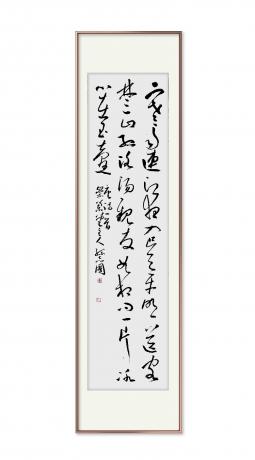 寒雨連江夜入吴平明送客
楚山孤洛陽親友如相問一片冰
心在玉壺